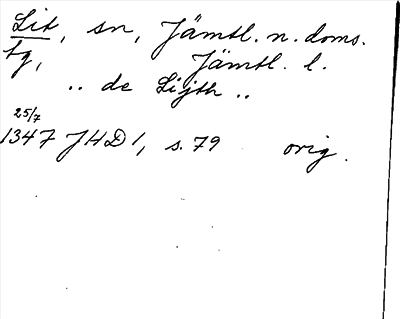 Lit, sn, Jämtl. n. doms.
tg, Jämtl. l.
.. de Lijth ..
25/7
1347 JHD 1, s. 79 orig.